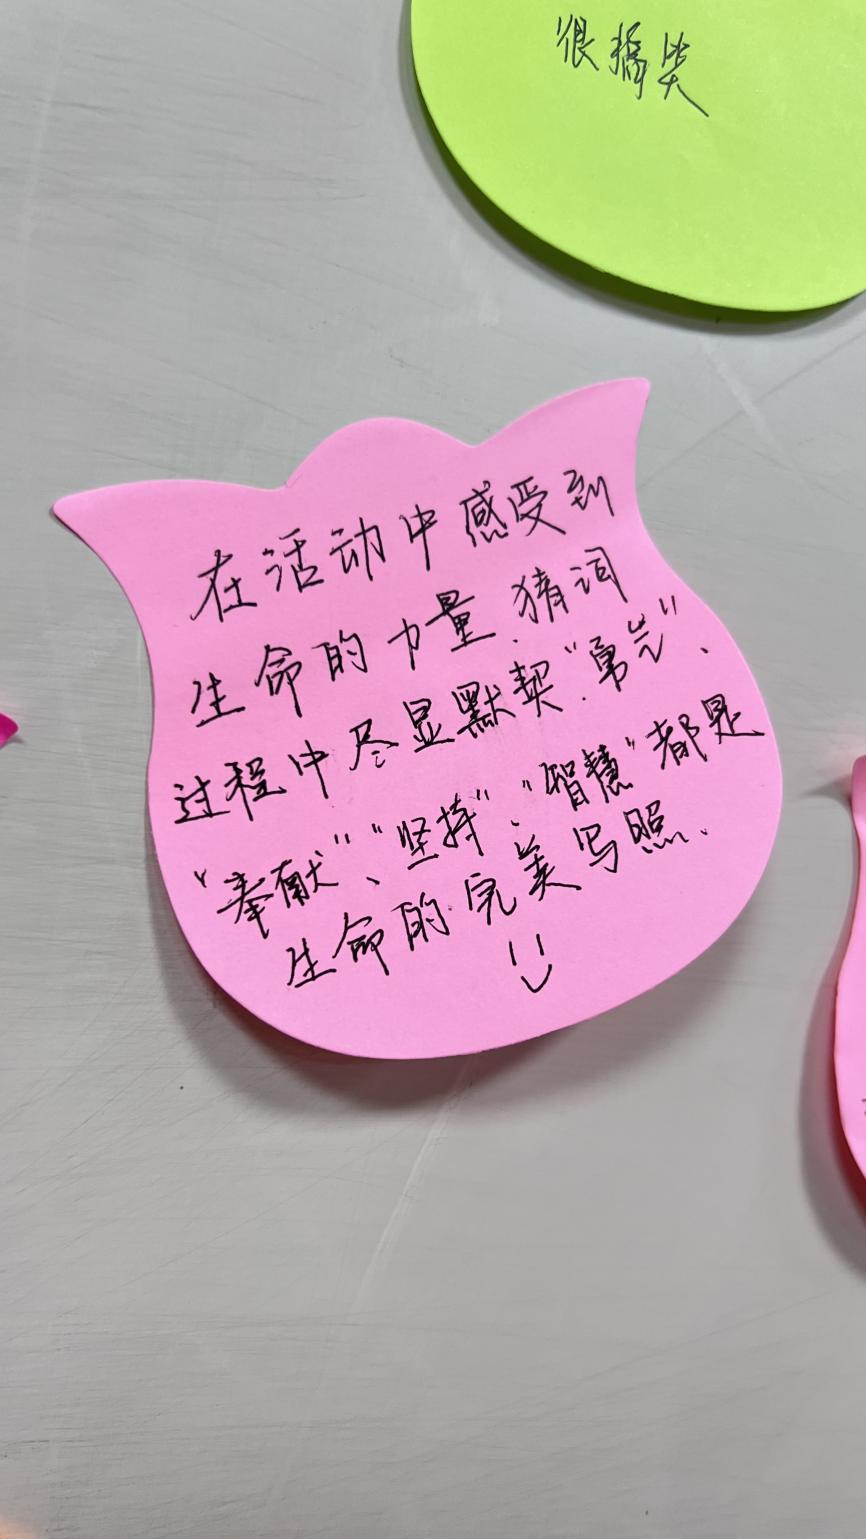 很搞笑
在活动中感受到
生命的力量.猜词
过程中尽显默契.“勇气”、
“奉献”、“坚持”、“智慧”都是
生命的完美写照.